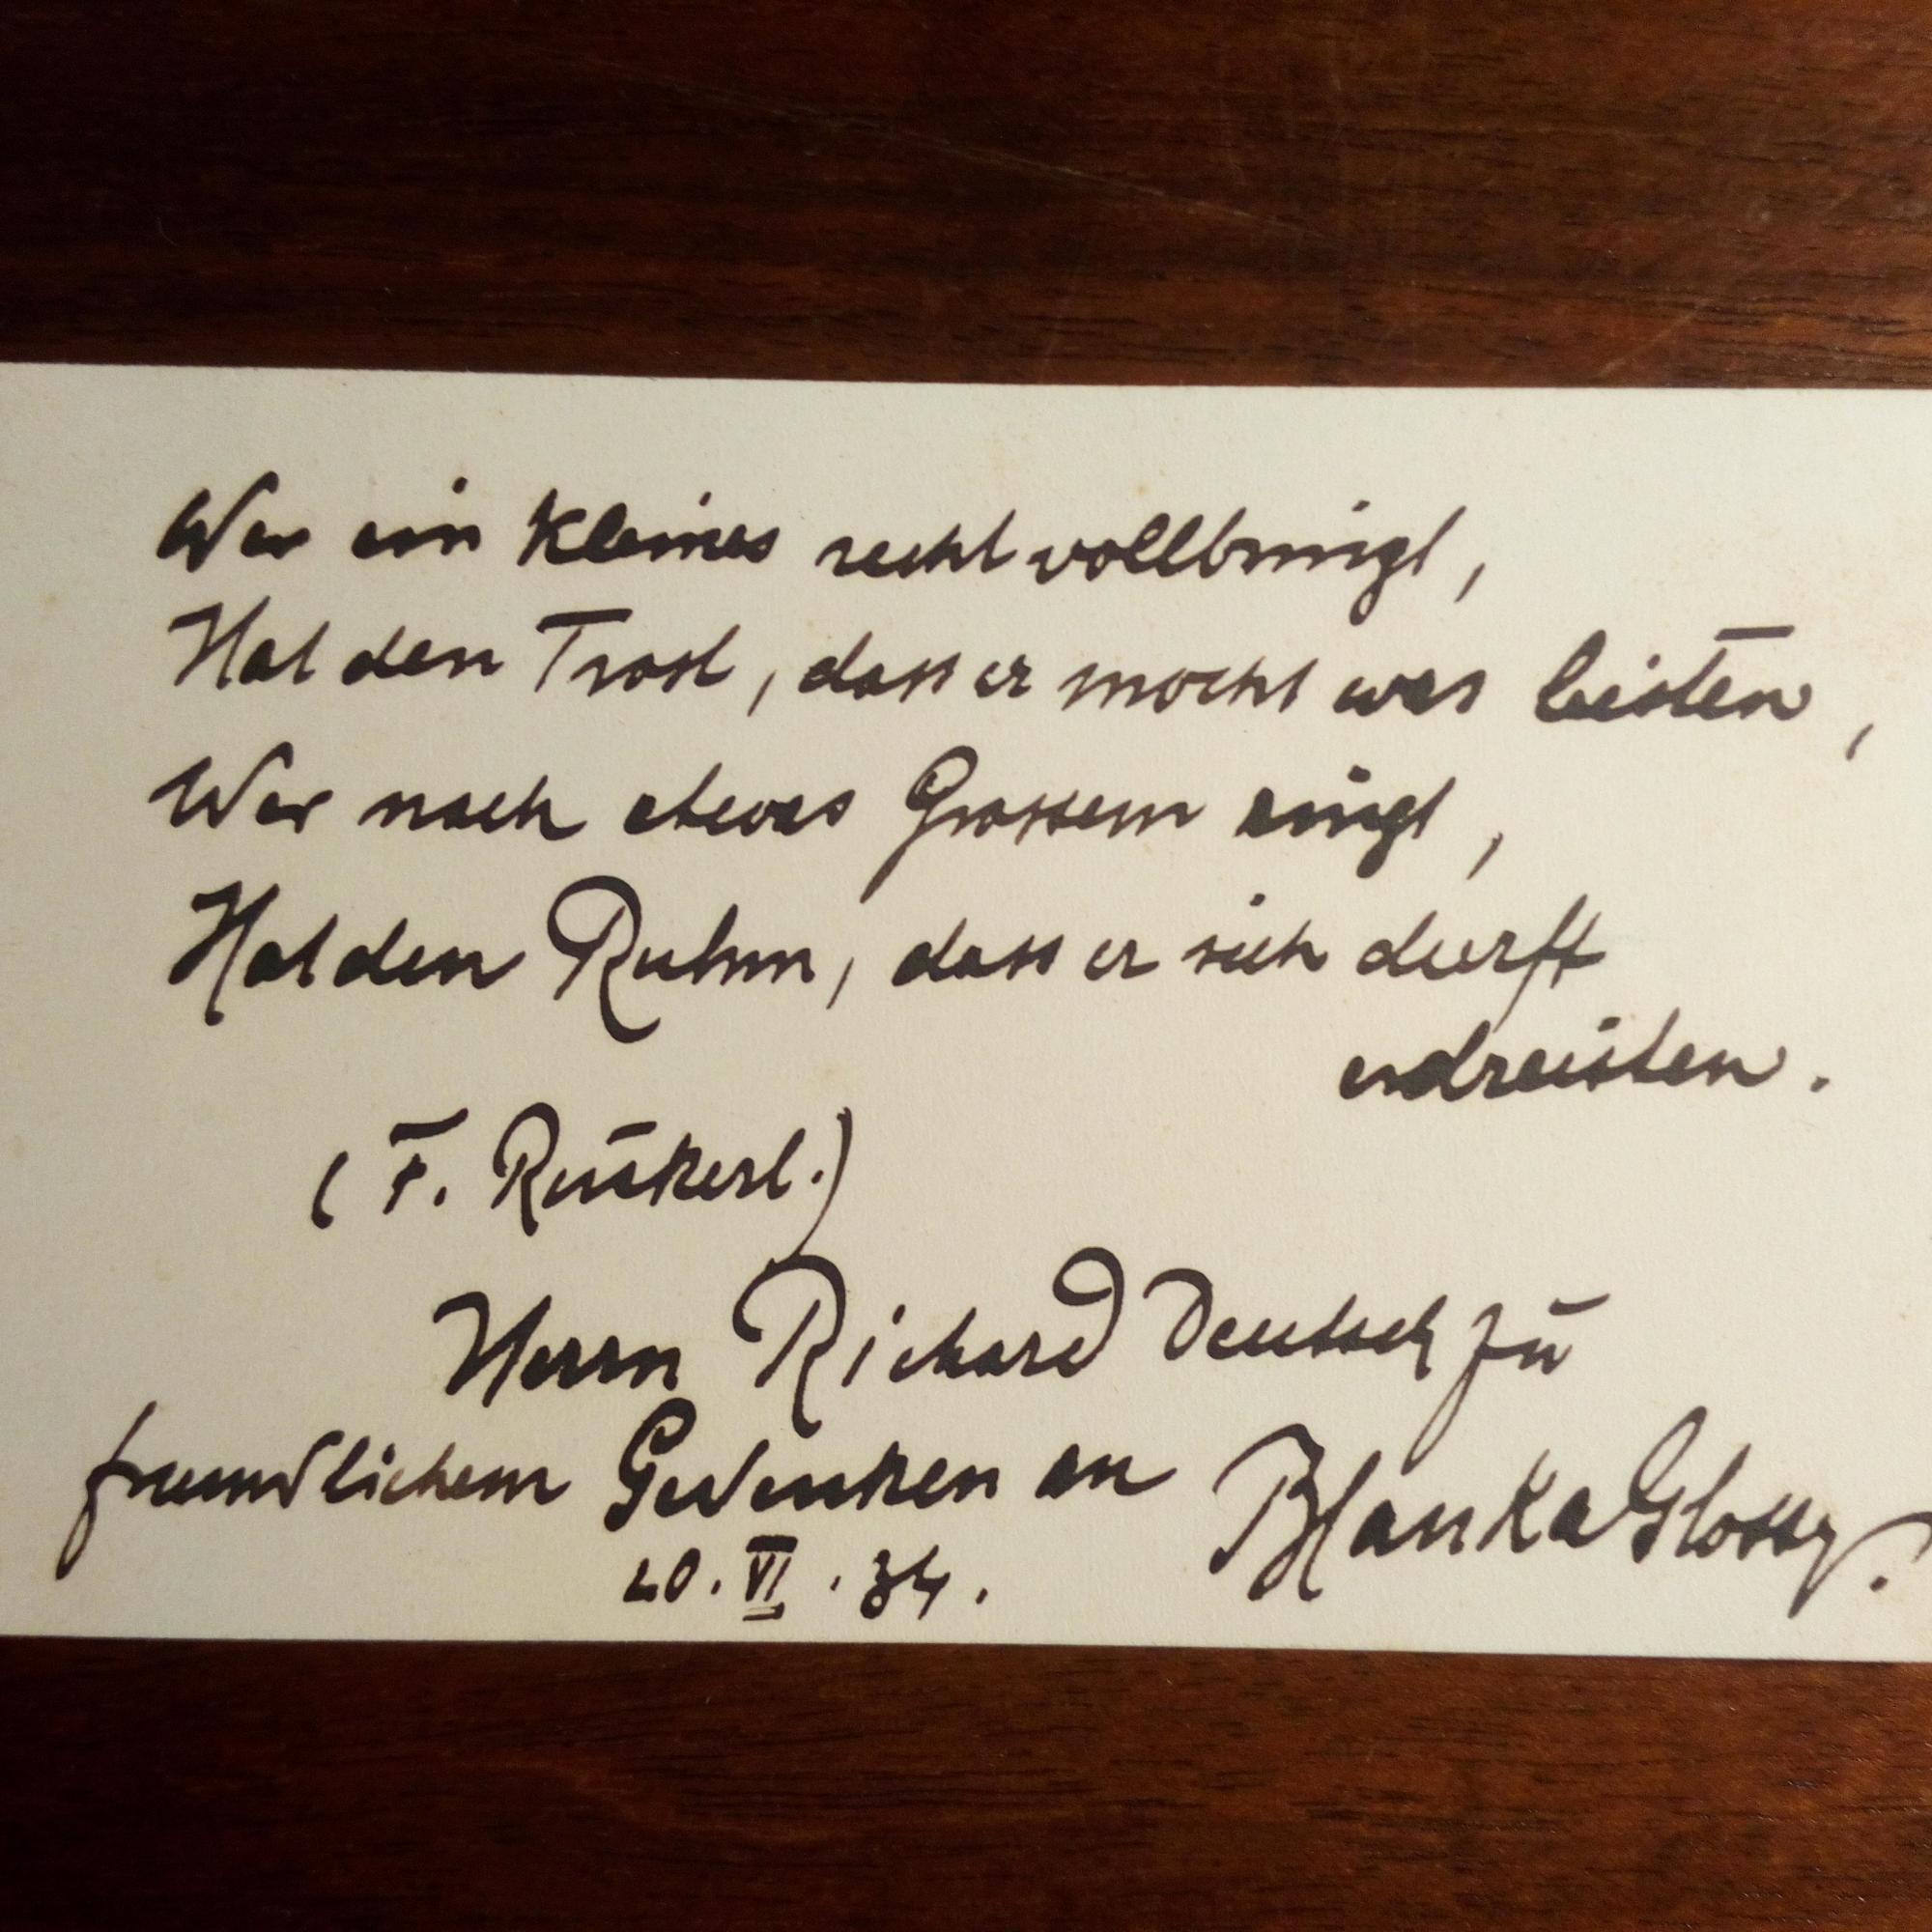 Wer ein Kleines recht vollbringt,
Hat den Trost, dass er mocht was leisten,
Wer nach etwas Grossem ringt,
Hat den Ruhm, dass er sich durft
erdreisten.
(F. Rückert.)
Herrn Richard Deutsch zu
freundlichem Gedenken an Blanka Glossy.
20. VI. 34.